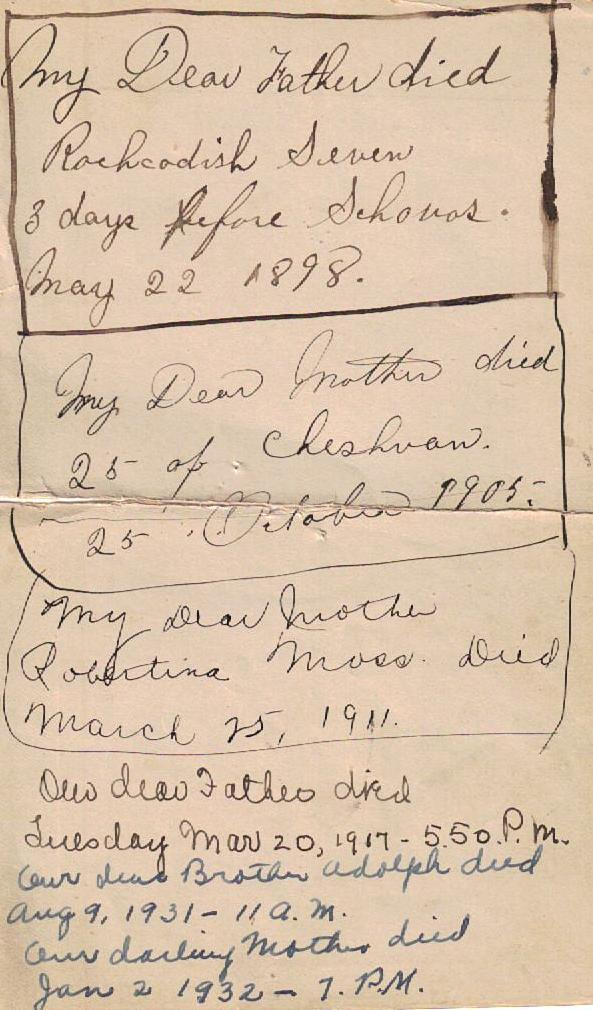 My Dear Father died
Rochcodish Seven
3 days before Schovos.
May 22 1898.
My Dear Mother died
25 of Cheshvan.
25 October 1905.
My Dear Mother
Robertina Moss. Died
March 25, 1911.
Our dear Father died
Tuesday Mar 20, 1917 - 5.50. P.M.
Our dear Brother Adolph died
Aug 9, 1931 - 11 A.M.
Our darling Mother died
Jan 2 1932 - 7. P.M.